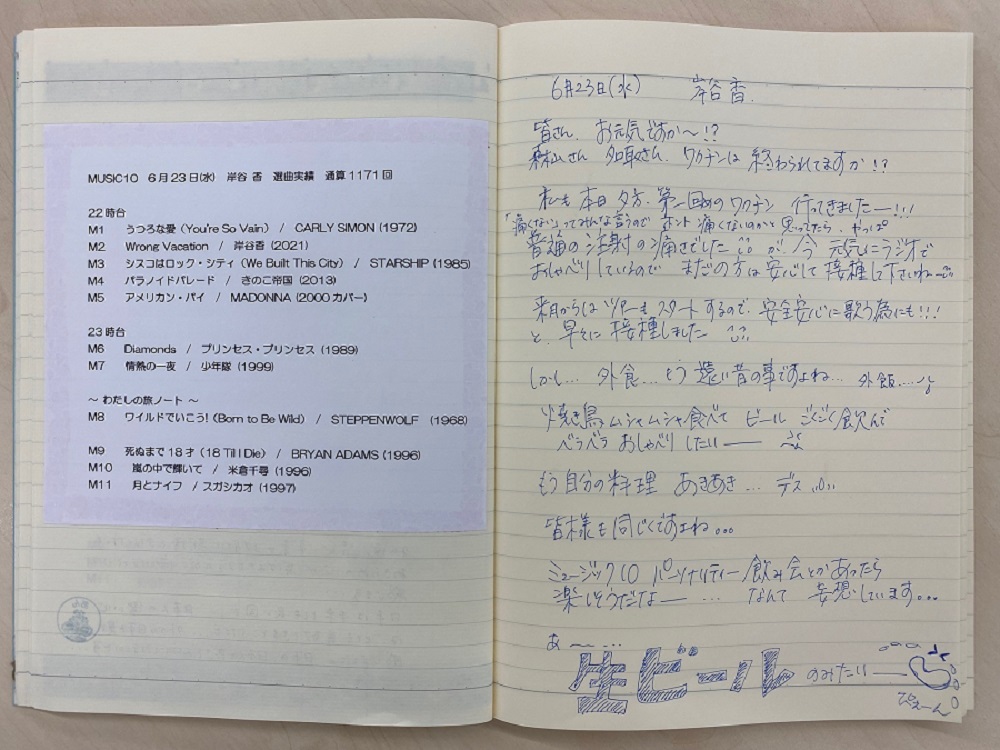 MUSIC10 6月23日(水) 岸谷 香 選曲実績 通算1171回
22時台
M1 うつろな愛 (You're So Vain) / CARLY SIMON (1972)
M2 Wrong Vacation / 岸谷香 (2021)
M3 シスコはロック・シティ (We Built This City) / STARSHIP (1985)
M4 パラノイドパレード / きのこ帝国 (2013)
M5 アメリカン・パイ / MADONNA (2000 カバー)
23時台
M6 Diamonds / プリンセス・プリンセス (1989)
M7 情熱の一夜 / 少年隊 (1999)
～ わたしの旅ノート ～
M8 ワイルドでいこう! (Born to Be Wild) / STEPPENWOLF (1968)
M9 死ぬまで18才 (18 Till I Die) / BRYAN ADAMS (1996)
M10 嵐の中で輝いて / 米倉千尋 (1996)
M11 月とナイフ / スガシカオ (1997)
6月23日(水) 岸谷香.
皆さん、お元気ですか〜!?
森山さん 名取さん、ワクチンは 終わられてますか!?
私も 本日 夕方、第一回めのワクチン 行ってきましたー!!!
「痛くない」ってみんな言うので ホント 痛くないのかと 思ってたら、やっぱ
普通の注射の痛さでした が、今 元気にラジオで
おしゃべりしているので まだの方は 安心して 接種して下さいねー
来月からは ツアーも スタートするので、安全安心に歌う為にも!!!
と、早々に 接種しました
しかし… 外食… もう 遠い昔の事ですよね… 外飯……
焼き鳥 ムシャムシャ食べて ビール ごくごく飲んで
ベラベラ おしゃべり したいー
もう 自分の料理 あきあき… デス
皆様も同じくですよね…
ミュージック10 パーソナリティー 飲み会とかあったら
楽しそうだなー … なんて 妄想しています…
あ〜…
生ビール のみたいー
ぴえーん